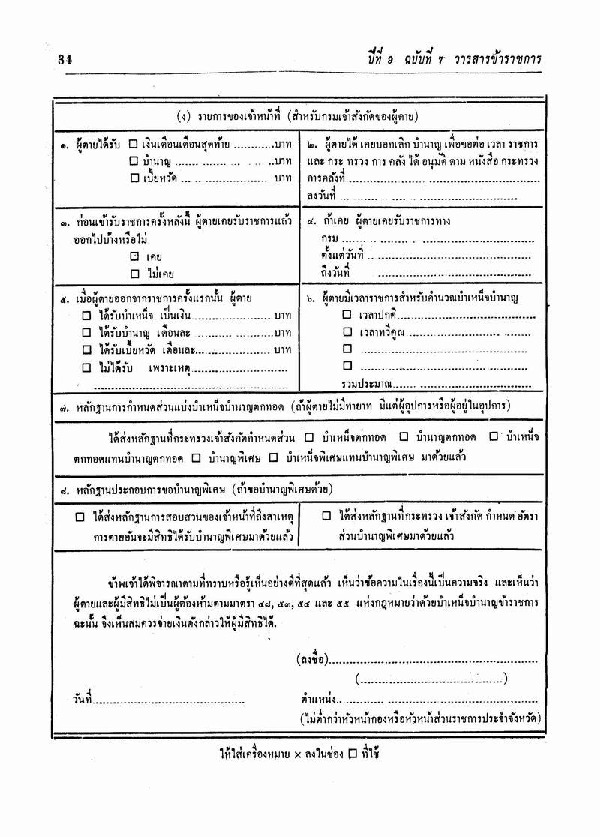 34 ปีที่ ๑ ฉบับที่ ๗ วารสารข้าราชการ
(ง) รายการของเจ้าหน้าที่ (สำหรับกรมเจ้าสังกัดของผู้ตาย)
๑. ผู้ตายได้รับ ☐ เงินเดือนเดือนสุดท้าย ............บาท
☐ บำนาญ ........................บาท
☐ เบี้ยหวัด ........................ บาท
๒. ผู้ตายได้ เคยบอกเลิก บำนาญ เพื่อขอต่อ เวลา ราชการ
และ กระ ทรวง การ คลัง ได้ อนุมัติ ตาม หนังสือ กระทรวง
การคลังที่ ................................
ลงวันที่ ................................
๓. ก่อนเข้ารับราชการครั้งหลังนี้ ผู้ตายเคยรับราชการแล้ว
ออกไปบ้างหรือไม่
☐ เคย
☐ ไม่เคย
๔. ถ้าเคย ผู้ตายเคยรับราชการทาง
กรม ................................
ตั้งแต่วันที่ ................................
ถึงวันที่ ................................
๕. เมื่อผู้ตายออกจากราชการครั้งแรกนั้น ผู้ตาย
☐ ได้รับบำเหน็จ เป็นเงิน........................ บาท
☐ ได้รับบำนาญ เดือนละ........................ บาท
☐ ได้รับเบี้ยหวัด เดือนละ........................ บาท
☐ ไม่ได้รับ เพราะเหตุ........................
................................
๖. ผู้ตายมีเวลาราชการสำหรับคำนวณบำเหน็จบำนาญ
☐ เวลาปกติ................................
☐ เวลาทวีคูณ................................
☐ ................................
☐ ................................
รวมประมาณ................................
๗. หลักฐานการกำหนดส่วนแบ่งบำเหน็จบำนาญตกทอด (ถ้าผู้ตายไม่มีทายาท มีแต่ผู้อุปการหรือผู้อยู่ในอุปการ)
ได้ส่งหลักฐานที่กระทรวงเจ้าสังกัดกำหนดส่วน ☐ บำเหน็จตกทอด ☐ บำนาญตกทอด ☐ บำเหน็จ
ตกทอดแทนบำนาญตกทอด ☐ บำนาญพิเศษ ☐ บำเหน็จพิเศษแทนบำนาญพิเศษ มาด้วยแล้ว
๘. หลักฐานประกอบการขอบำนาญพิเศษ (ถ้าขอบำนาญพิเศษด้วย)
☐ ได้ส่งหลักฐานการสอบสวนของเจ้าหน้าที่ถึงสาเหตุ
การตายอันจะมีสิทธิได้รับบำนาญพิเศษมาด้วยแล้ว
☐ ได้ส่งหลักฐานที่กระทรวง เจ้าสังกัด กำหนด อัตรา
ส่วนบำนาญพิเศษมาด้วยแล้ว
ข้าพเจ้าได้พิจารณาตามที่ทราบหรือรู้เห็นอย่างดีที่สุดแล้ว เห็นว่าข้อความในเรื่องนี้เป็นความจริง และเห็นว่า
ผู้ตายและผู้มีสิทธิไม่เป็นผู้ต้องห้ามตามมาตรา ๔๘, ๕๓, ๕๔ และ ๕๕ แห่งกฎหมายว่าด้วยบำเหน็จบำนาญข้าราชการ
ฉะนั้น จึงเห็นสมควรจ่ายเงินดังกล่าวให้ผู้มีสิทธิได้.
(ลงชื่อ)................................
(................................)
วันที่................................ ตำแหน่ง................................
(ไม่ต่ำกว่าหัวหน้ากองหรือหัวหน้าส่วนราชการประจำจังหวัด)
ให้ใส่เครื่องหมาย × ลงในช่อง ☐ ที่ใช้